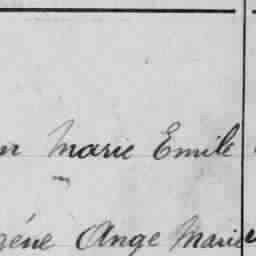 Marie Emile
Ange Marie